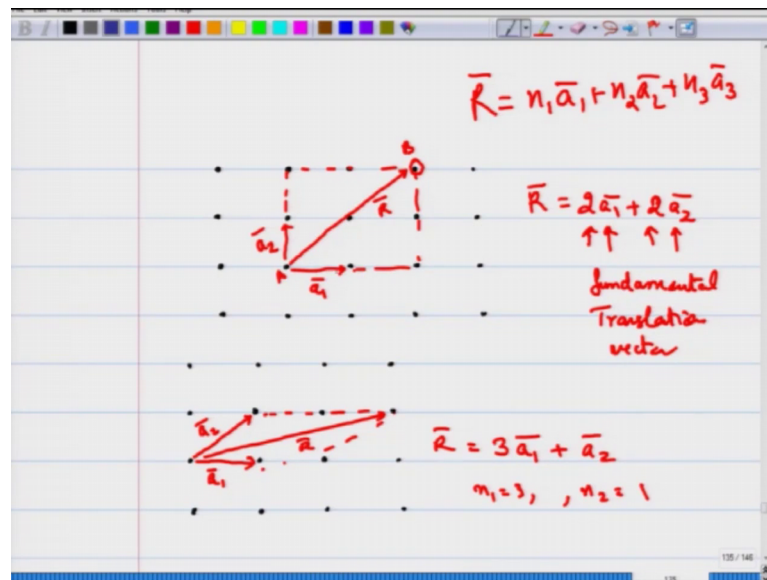 B I
R̄ = n₁ā₁ + n₂ā₂ + n₃ā₃
B
R̄
ā₂
A
ā₁
R̄ = 2ā₁ + 2ā₂
↑↑ ↑↑
fundamental
Translation
vector
ā₂
ā₁
R̄ = 3ā₁ + ā₂
n₁=3, , n₂= 1
135 / 146